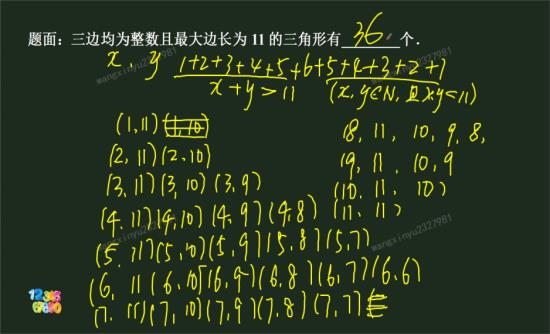 题面：三边均为整数且最大边长为 11 的三角形有 36 个．
x, y 1+2+3+4+5+6+5+4+3+2+1
x+y>11 (x,y∈N,且x,y≤11)
(1,11)
(8, 11, 10, 9, 8,
(2,11)(2,10)
(9, 11, 10, 9
(3,11)(3,10)(3,9)
(10, 11, 10)
(4,11)(4,10)(4,9)(4,8)
(11, 11)
(5,11)(5,10)(5,9)(5,8)(5,7)
(6,11)(6,10)(6,9)(6,8)(6,7)(6,6)
(7,11)(7,10)(7,9)(7,8)(7,7)
wangxinyu2327981
wangxinyu2327981
wangxinyu2327981
wangxinyu2327981